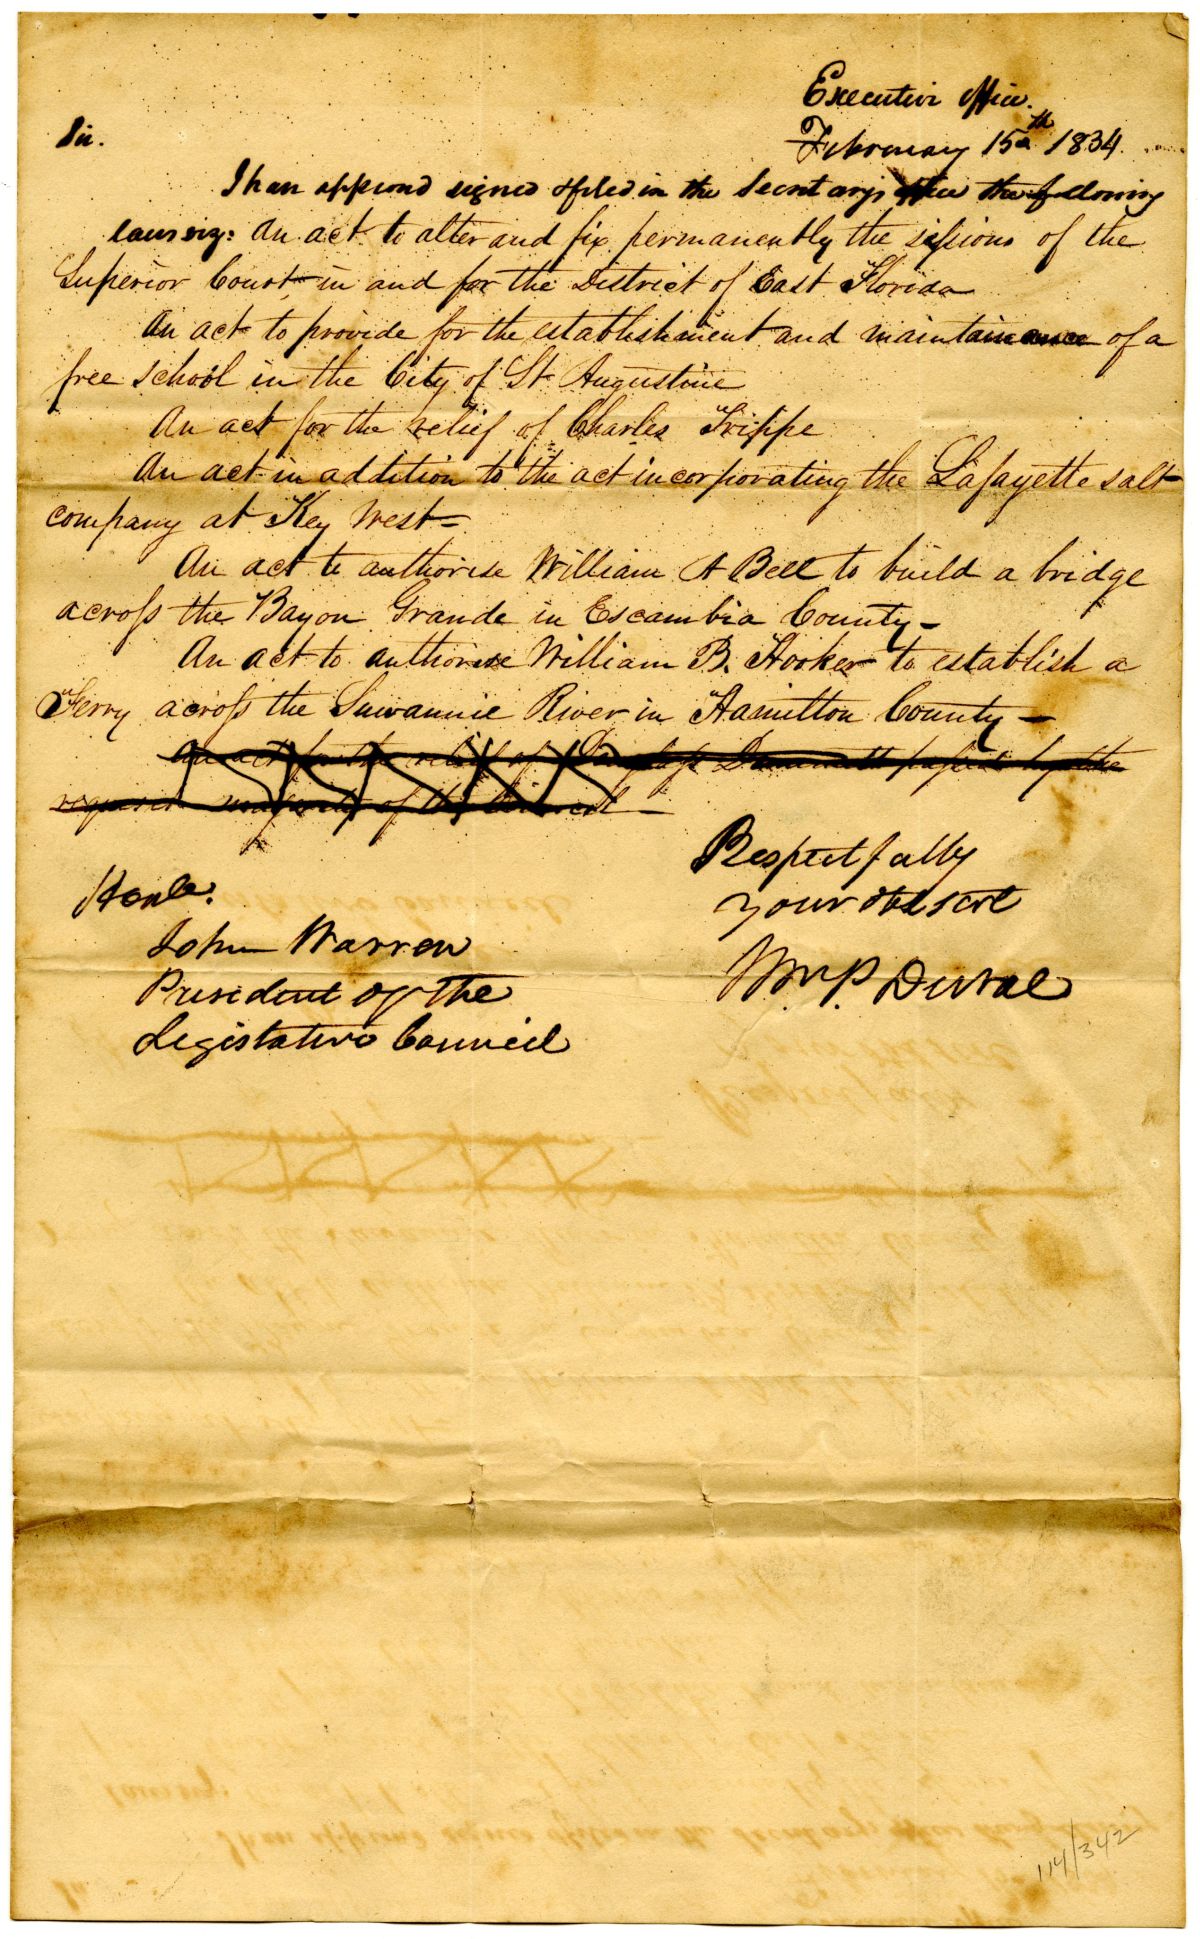 Executive office.
February 15th 1834.
Sir.
I have approved signed & filed in the Secretary's office the following
laws viz: An act to alter and fix permanently the sessions of the
Superior Court in and for the District of East Florida
An act to provide for the establishment and maintainance of a
free school in the City of St Augustine
An act for the relief of Charles Trippe
An act in addition to the act incorporating the Lafayette salt
company at Key West
An act to authorise William A Bell to build a bridge
across the Bayou Grande in Escambia County
An act to authorise William B. Hooker to establish a
Ferry across the Suwannie River in Hamilton County
An act for the relief of Dummett passed by the
majority of the
Respectfully
your obt servt
Wm P. Duval
Honle.
John Warren
President of the
Legislative Council
114/342